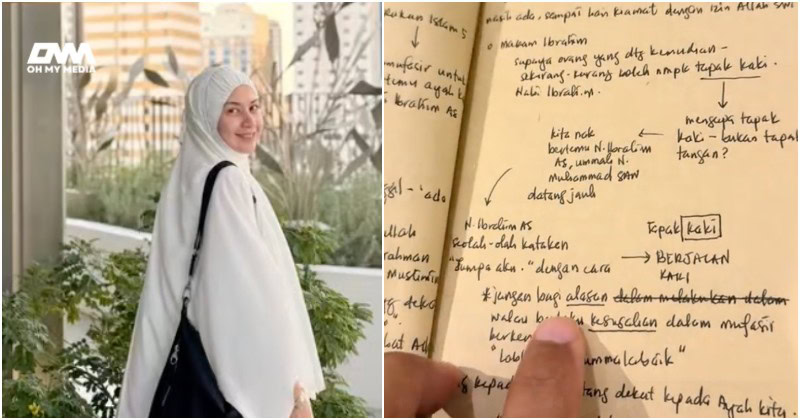 OH MY MEDIA
rokan Islam 5
mufasir untuk
temu ayah k
Ibrahim AS
ada
llah
rahman
Mustimin
masih ada, sampai hari kiamat dengan izin Allah SWT
Makam Ibrahim
supaya orang yang dtg kemudian -
sekarang. kurang boleh nmpk tapak kaki.
Nabi Ibrahim.
mengapa tapak
kaki - bukan tapak
tangan?
kita nak
bertemu N. Ibrahim
AS, ummah N.
Muhammad SAW
datang jauh
N. Ibrahim AS
seolah-olah katakan
"Jumpa aku." dengan cara
Tapak kaki
BERJALAN
KAKI
*jangan bagi alasan dalam melakukan dalam
walau kesusahan dalam mufasir
kepada dekat kepada Ayah kita